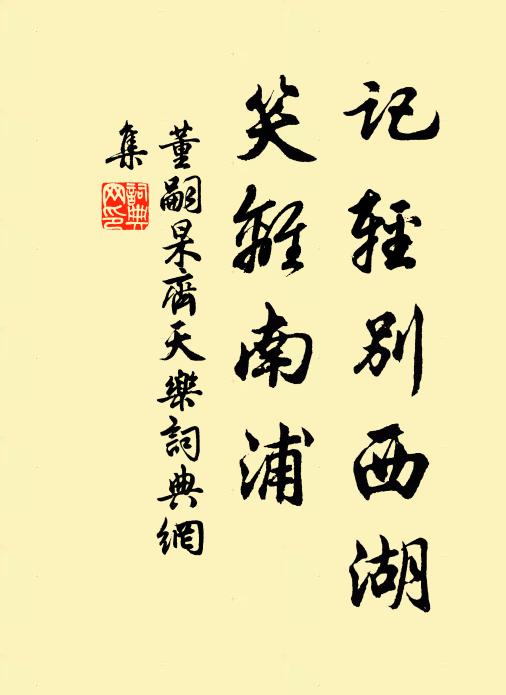 記輕別西湖
笑離南浦
董嗣杲齊天樂詞典網
集
詞典
网印